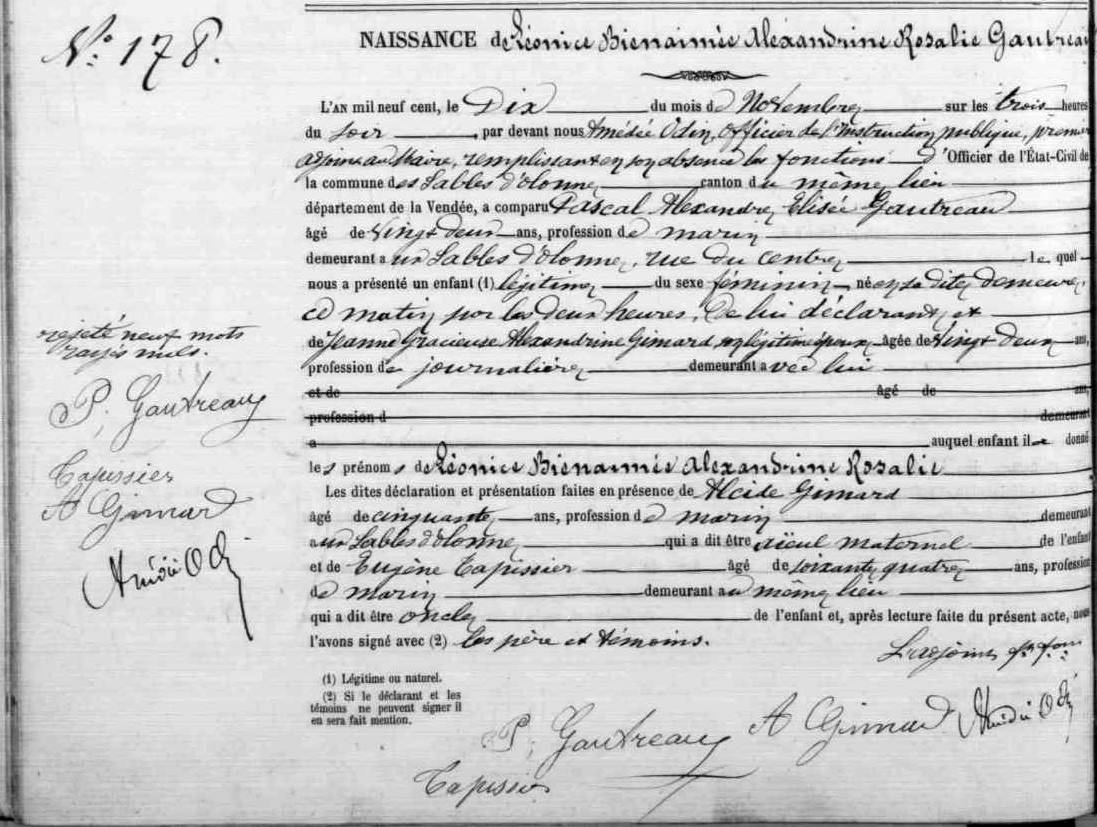 N° 178.
NAISSANCE de Léonice Bienaimée Alexandrine Rosalie Gautreau
L'AN mil neuf cent, le Dix du mois de Novembre sur les trois heures
du soir, par devant nous Amédée Odin, officier de l'Instruction publique, premier
adjoint au Maire, remplissant en son absence les fonctions d'Officier de l'État-Civil de
la commune des Sables d'olonne canton du même lieu
département de la Vendée, a comparu Pascal Alexandre Elisée Gautreau
âgé de Vingt deux ans, profession de marin
demeurant aux Sables d'olonne, rue du centre lequel
nous a présenté un enfant (1) légitime du sexe féminin née en sa dite demeure,
ce matin sur les deux heures, de lui déclarant, et
de Jeanne Gracieuse Alexandrine Gimard, son légitime épouse, âgée de Vingt deux ans,
profession de journalière demeurant avec lui
et de âgé de ans,
profession d demeurant
a auquel enfant il a donné
les prénoms de Léonice Bienaimée Alexandrine Rosalie
Les dites déclaration et présentation faites en présence de Alcide Gimard
âgé de cinquante ans, profession de marin demeurant
aux Sables d'olonne qui a dit être aïeul maternel de l'enfant
et de Eugène Tapissier âgé de soixante quatre ans, profession
de marin demeurant au même lieu
qui a dit être oncle de l'enfant et, après lecture faite du présent acte, nous
l'avons signé avec (2) les père et témoins.
L'adjoint
(1) Légitime ou naturel.
(2) Si le déclarant et les
témoins ne peuvent signer il
en sera fait mention.
P. Gautreau
A Gimard
Amédée Odin
Tapissier
rejeté neuf mots
rayés nuls.
P. Gautreau
Tapissier
A Gimard
Amédée Odin